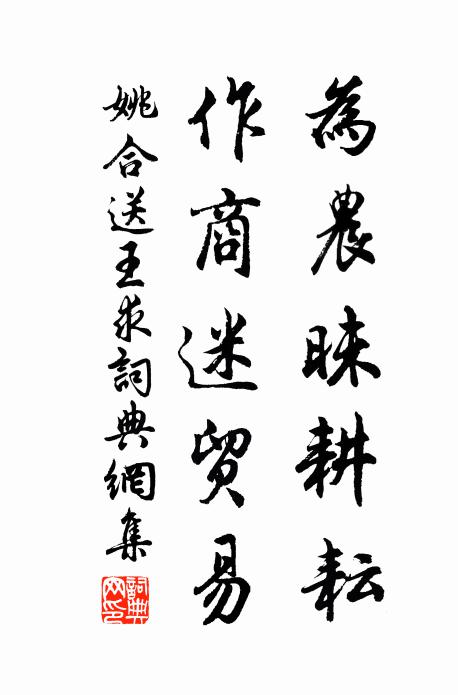 為農昧耕耘
作商迷貿易
姚合送王求詞典網集
詞典網印